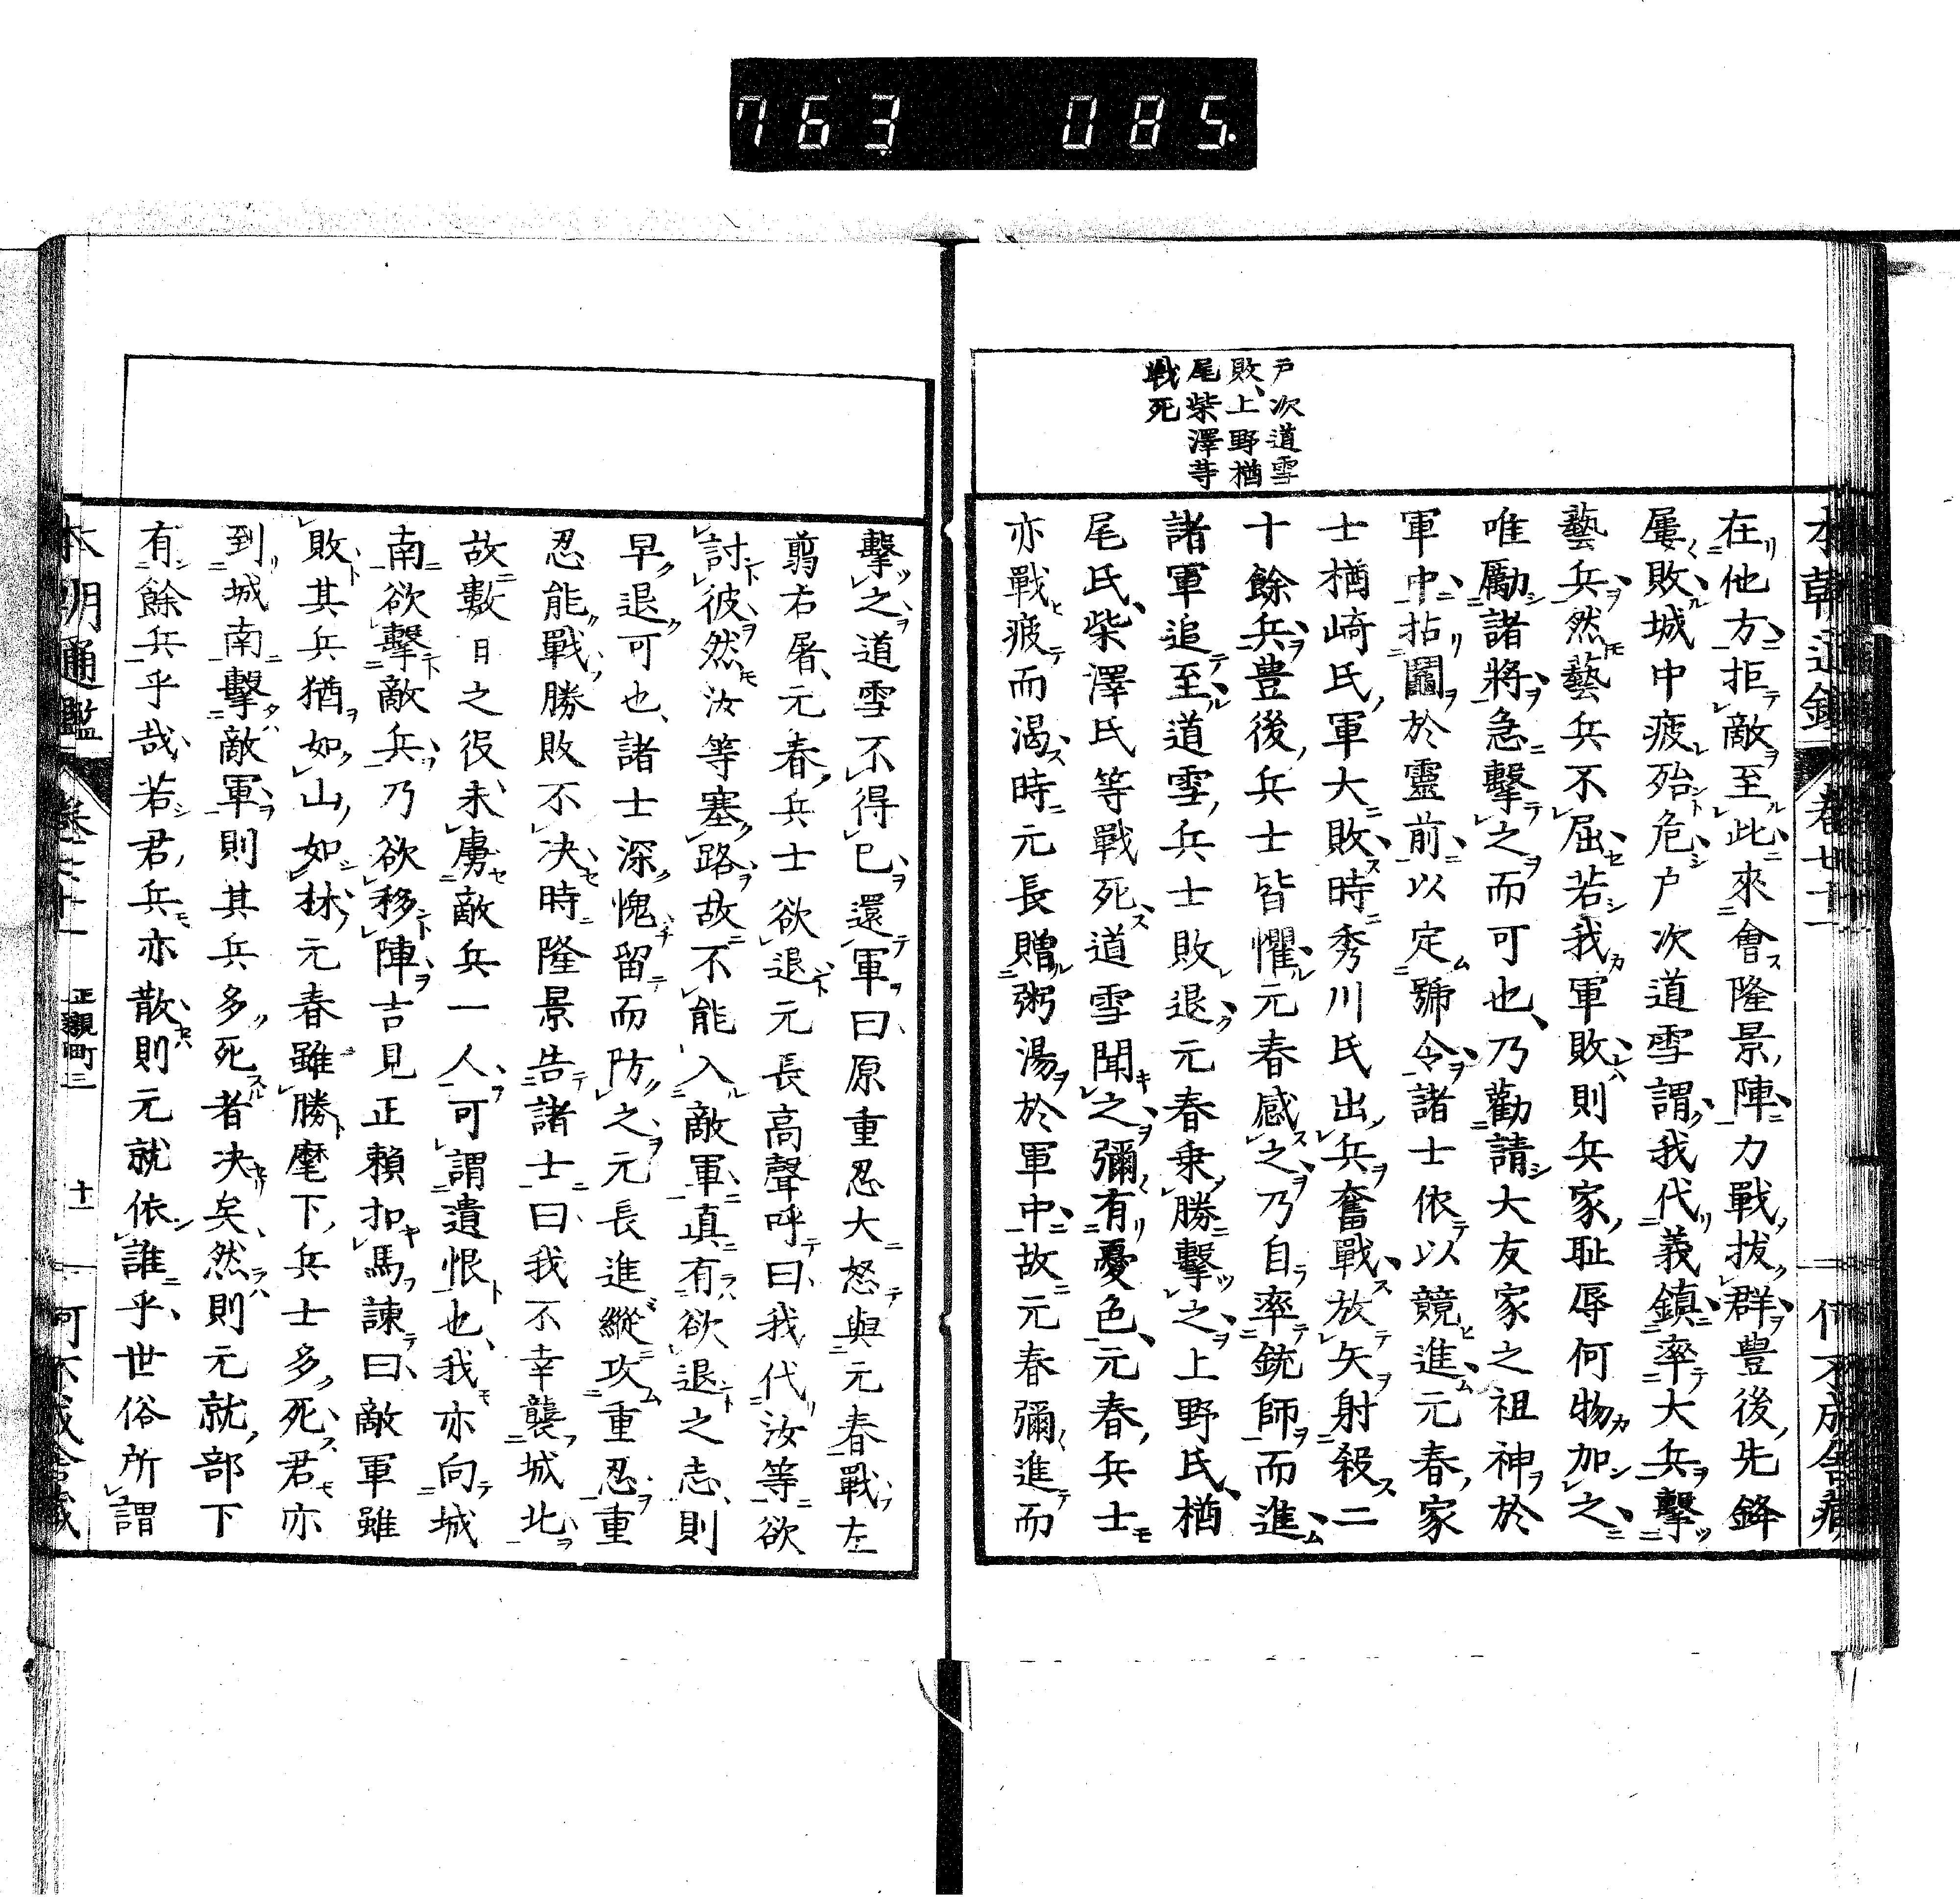 763 085.
戶次道雪
敗、上野楢
尾柴澤等
戰死
在他方拒敵至此來會隆景陣力戰拔群豊後先鋒
屢敗城中疲殆危戶次道雪謂我代義鎮率大兵擊
藝兵然藝兵不屈若我軍敗則兵家耻辱何物加之
唯勵諸將急擊之而可也、乃勸請大友家之祖神於
軍中拈鬮於靈前以定號令諸士依以競進元春家
士楢崎氏軍大敗時秀川氏出兵奮戰放矢射殺二
十餘兵豊後兵士皆懼元春感之乃自率銃師而進
諸軍追至道雪兵士敗退元春乗勝擊之上野氏、楢
尾氏、柴澤氏等戰死道雪聞之彌有憂色、元春兵士
亦戰疲而渴時元長贈粥湯於軍中故元春彌進而
擊之道雪不得已還軍曰原重忍大怒與元春戰左
翦右屠、元春兵士欲退元長高聲呼曰我代汝等欲
討彼然汝等塞路故不能入敵軍真有欲退之志、則
早退可也、諸士深愧留而防之元長進縱攻重忍重
忍能戰勝敗不決時隆景告諸士曰我不幸襲城北
故數日之役未虜敵兵一人可謂遺恨也、我亦向城
南欲擊敵兵乃欲移陣吉見正賴扣馬諫曰敵軍雖
敗其兵猶如山如林元春雖勝麾下兵士多死君亦
到城南擊敵軍則其兵多死者決矣、然則元就部下
有餘兵乎哉若君兵亦散則元就依誰乎、世俗所謂
本朝通鑑 卷七十一 正親町三 十一